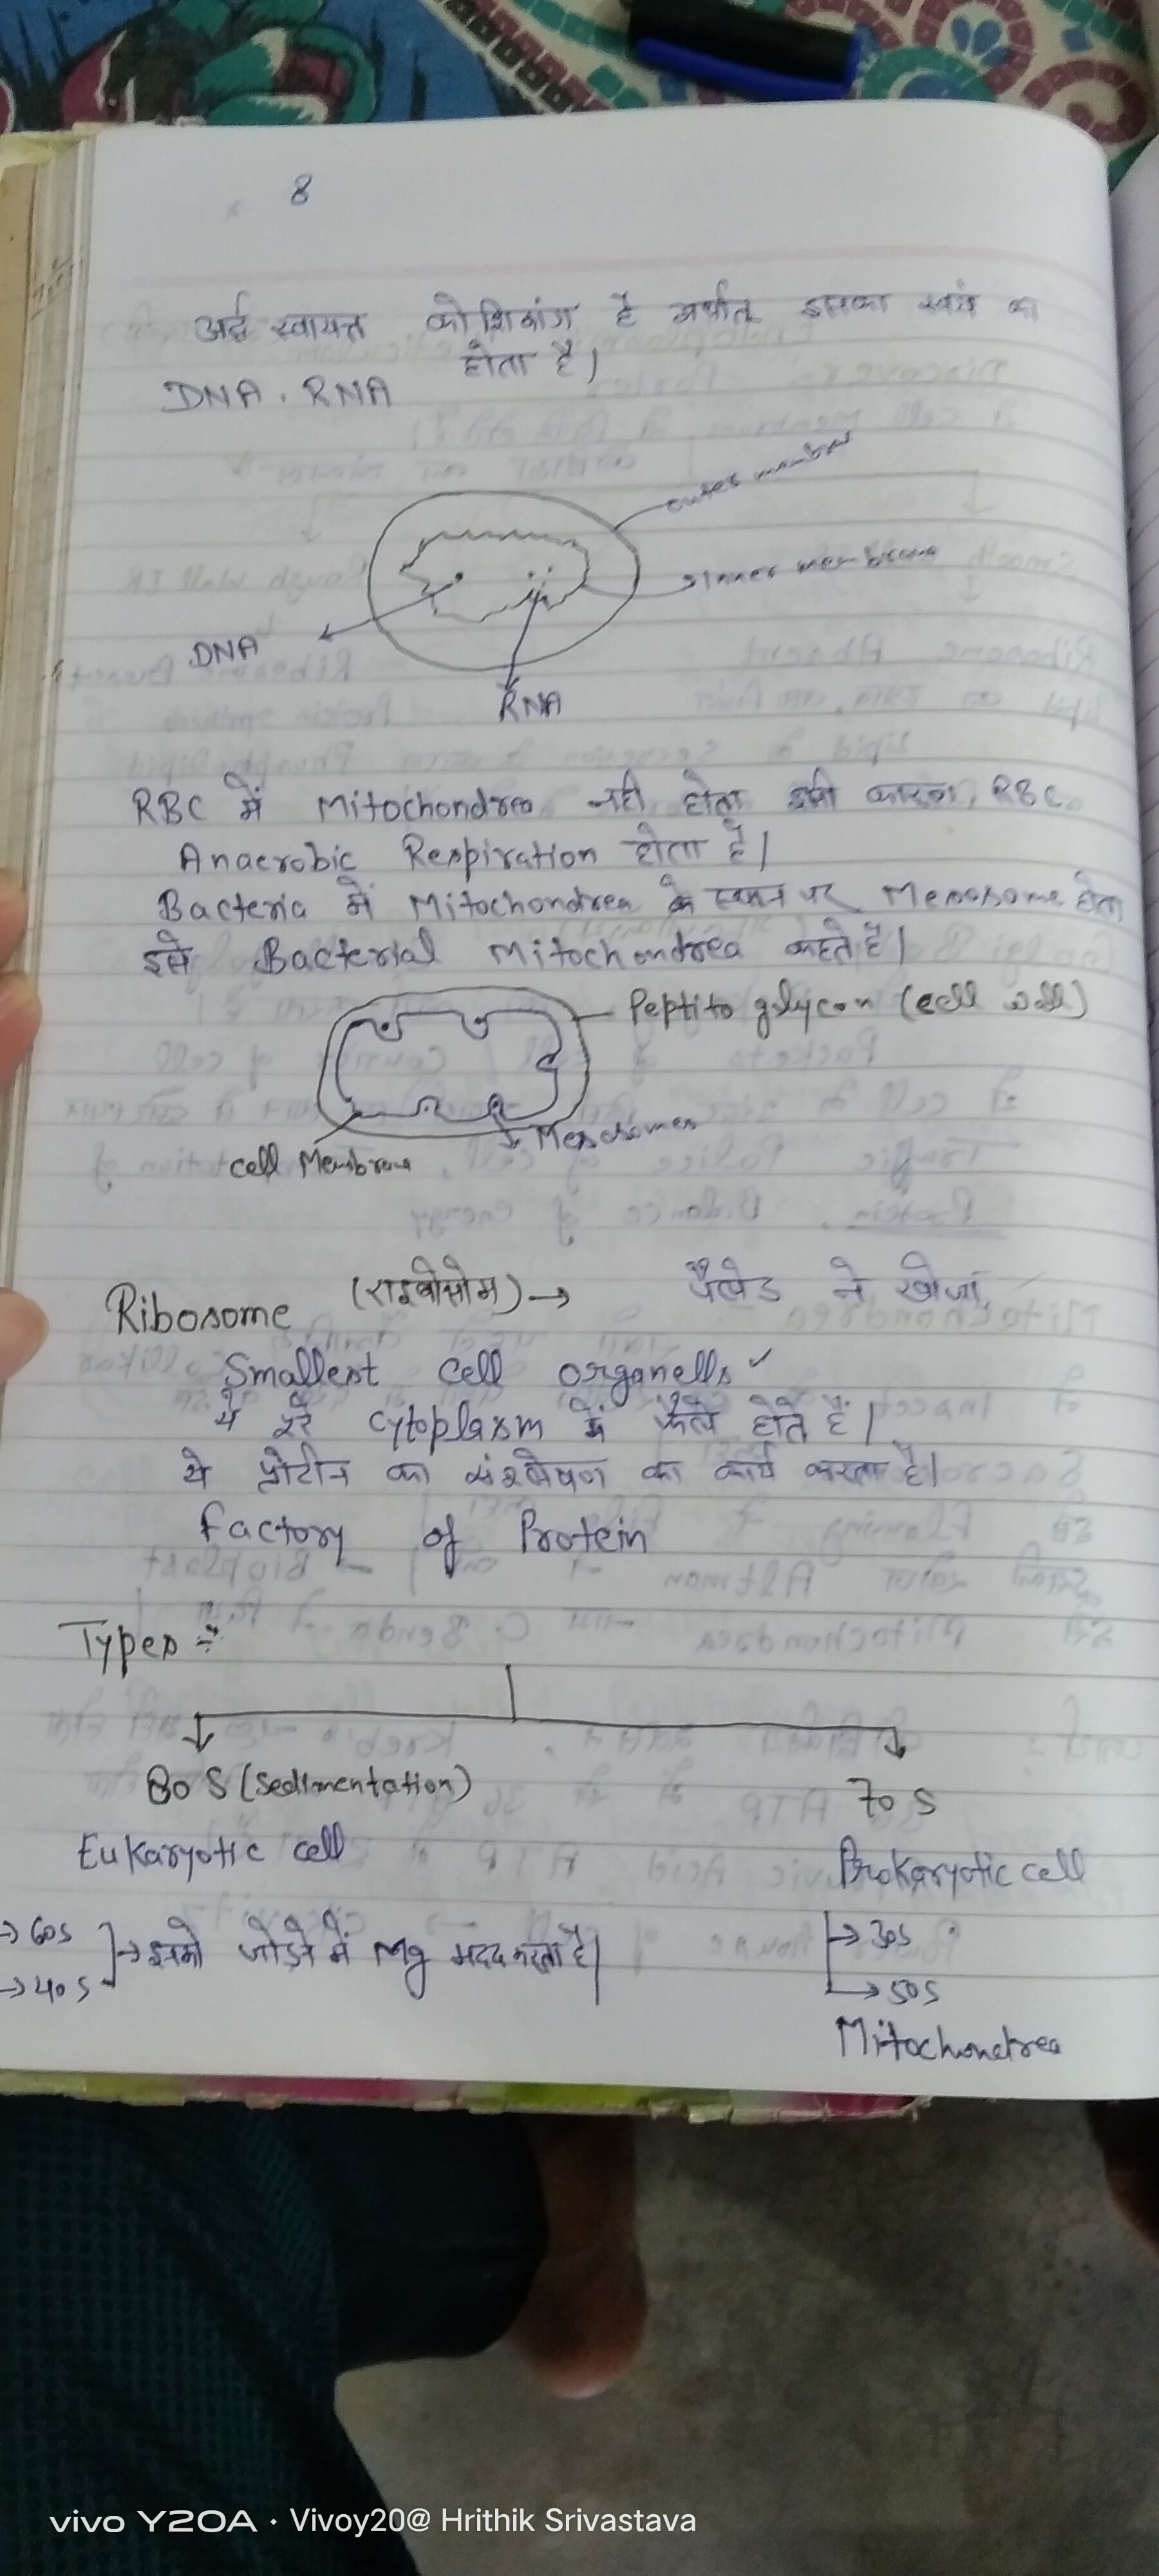 8
अर्द्ध स्वायत्त कोशिकांग है अर्थात् इसका स्वयं का
DNA. RNA होता है।
outer membrane
Inner membrane
DNA
RNA
RBC में Mitochondrea नही होता इसी कारण, RBC
Anaerobic Respiration होता है।
Bacteria में Mitochondrea के स्थान पर Mesosome होता
इसे Bacterial Mitochondrea कहते है।
Peptito glycon (cell wall)
Mesosomes
cell Membrane
Ribosome (राइबोसोम) → पैलेड ने खोजा,
Smallest cell organells ✓
ये पूरे cytoplasm में फैले होते हैं।
ये प्रोटीन का संश्लेषण का कार्य करता है।
factory of Protein
Types ÷
80 S (Sedimentation)
70 S
Eukaryotic cell
Prokaryotic cell
→ 60S
→ 40S
→ इनको जोड़ने में Mg मदद करता है।
→ 30S
→ 50S
Mitochondrea
vivo Y20A · Vivoy20@ Hrithik Srivastava